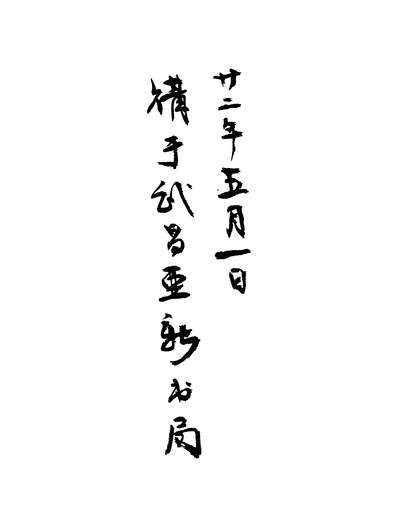 廿二年五月一日
構于武昌亞新书局